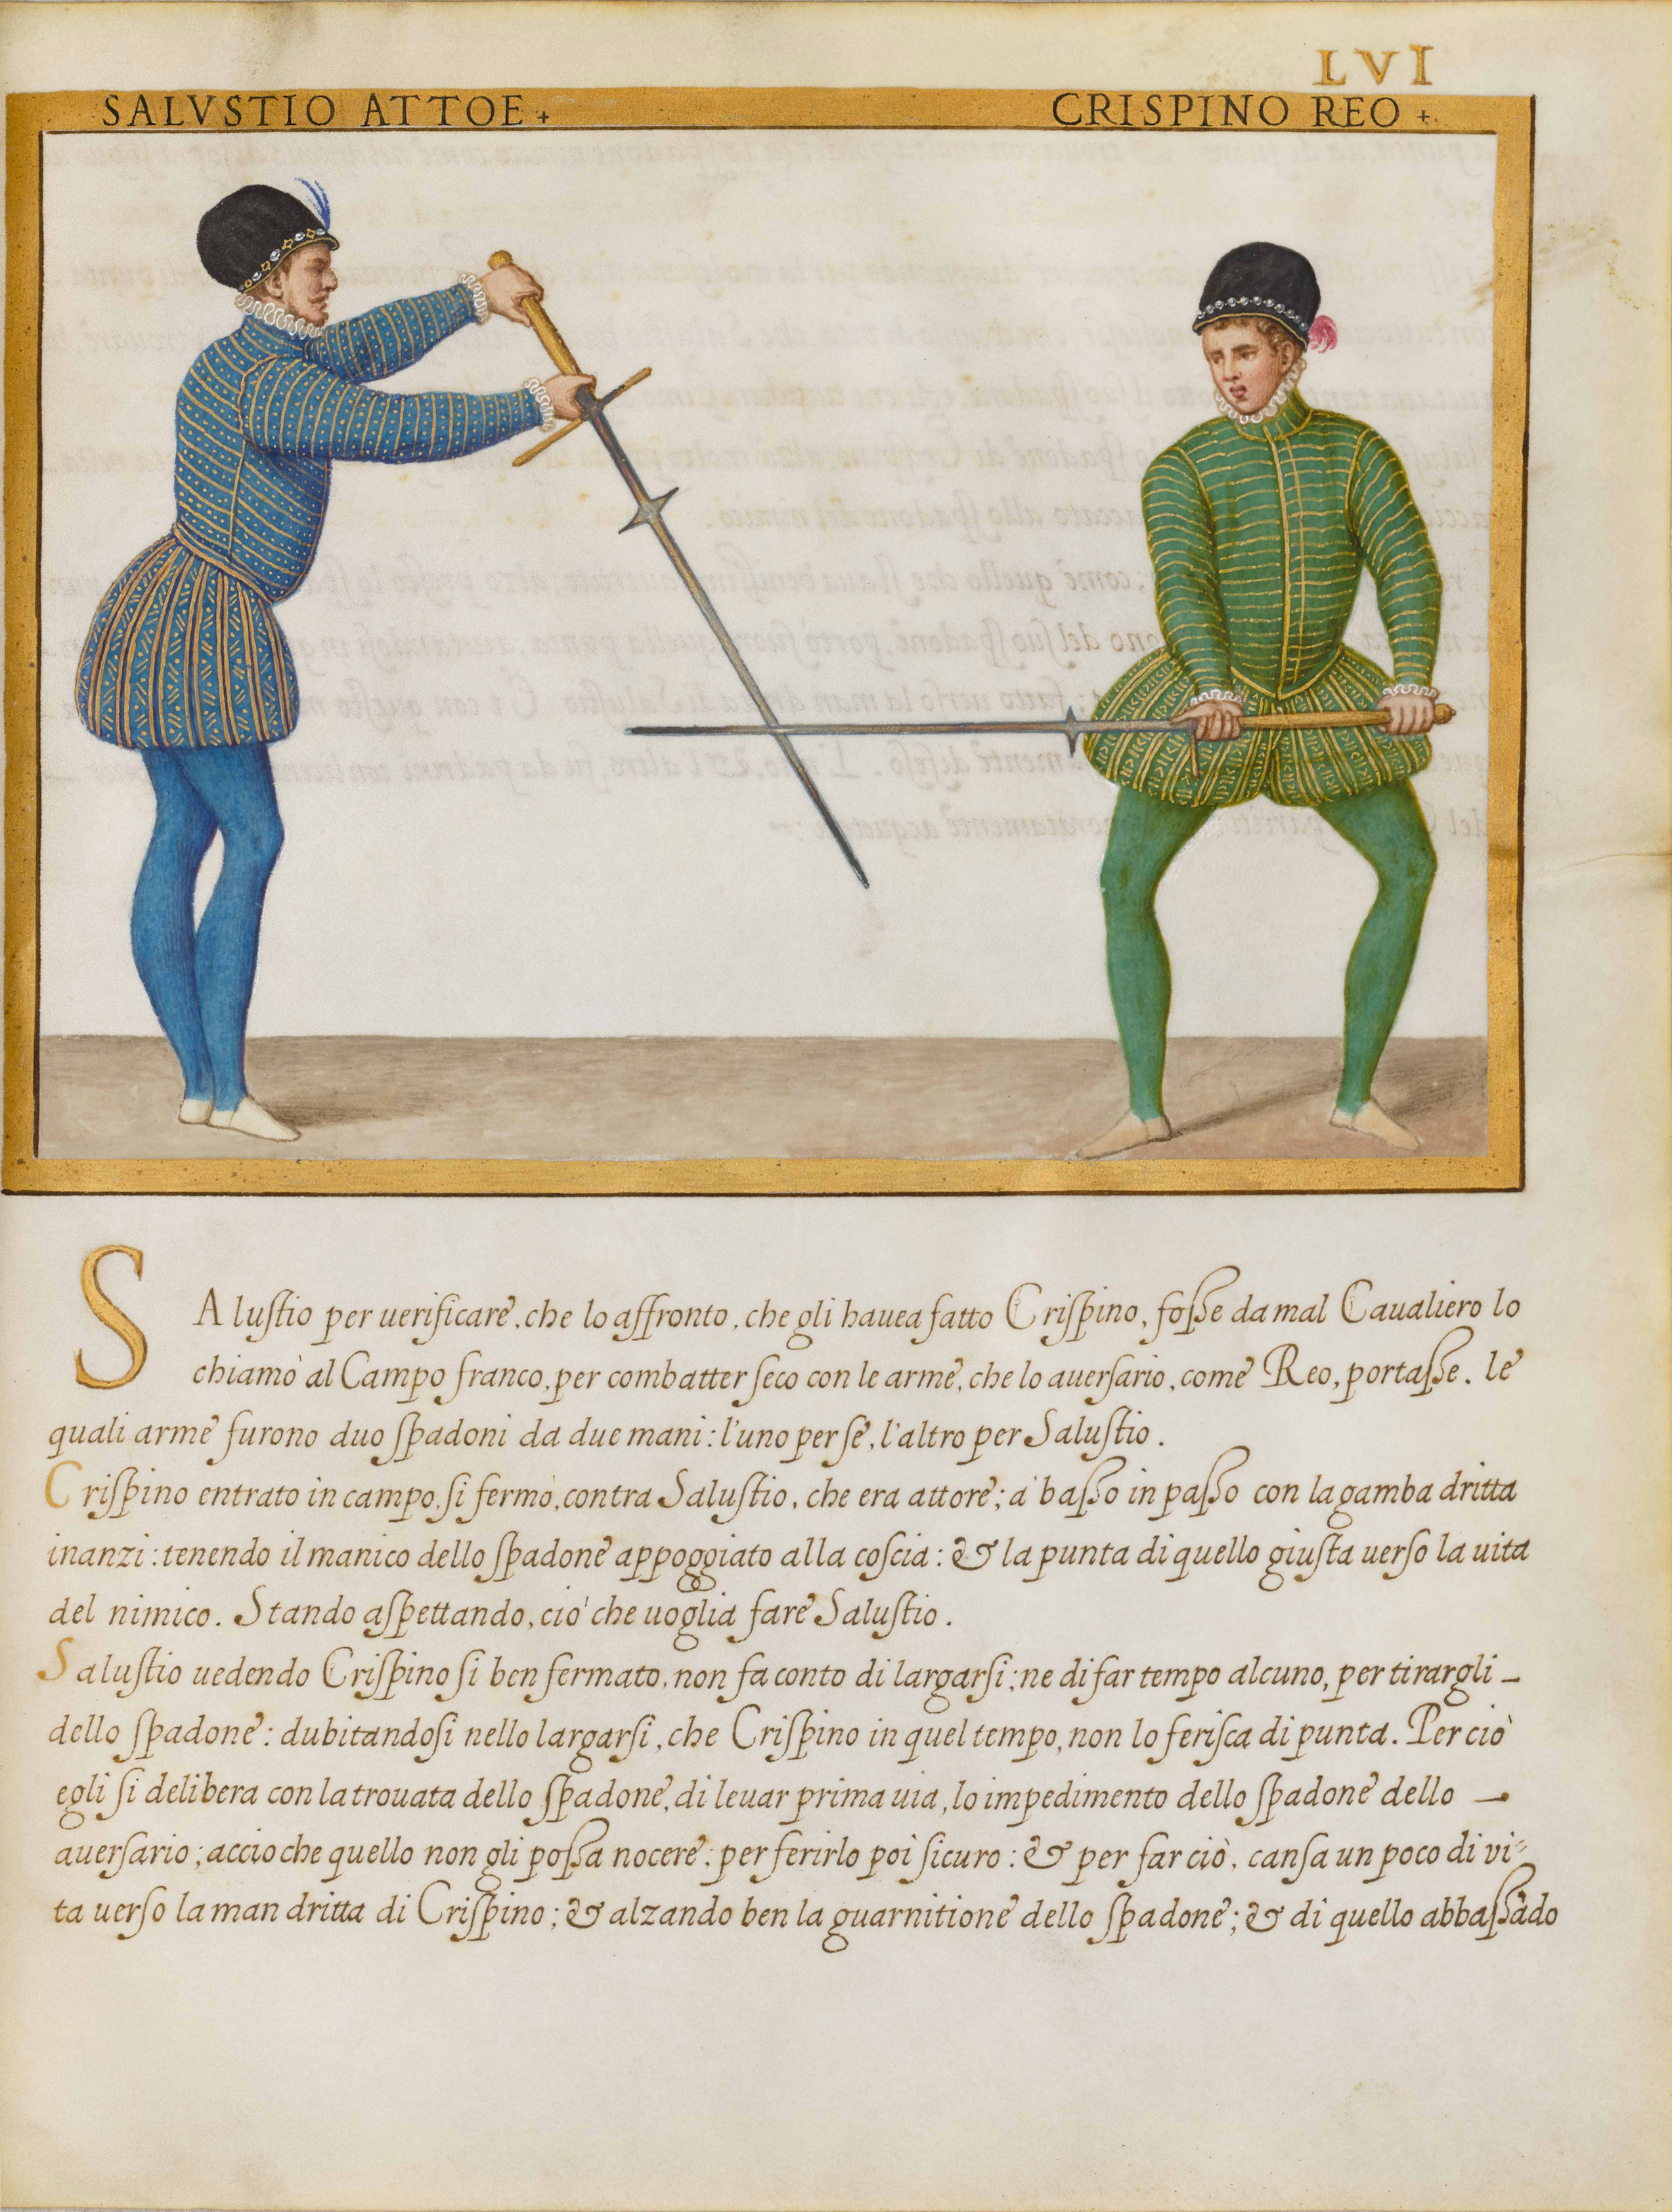 LVI
SALVSTIO ATTOE + CRISPINO REO +
SAlustio per uerificare, che lo affronto, che gli hauea fatto Crispino, fosse da mal Caualiero lo
chiamò al Campo franco, per combatter seco con le arme, che lo auersario, come Reo, portasse. le
quali arme furono duo spadoni da due mani: l'uno per se, l'altro per Salustio.
Crispino entrato in campo, si fermò, contra Salustio, che era attore; à basso in passo con la gamba dritta
inanzi: tenendo il manico dello spadone appoggiato alla coscia: & la punta di quello giusta uerso la uita
del nimico. Stando aspettando, ciò che uoglia fare Salustio.
Salustio uedendo Crispino si ben fermato, non fa conto di largarsi; ne di far tempo alcuno, per tirargli –
dello spadone: dubitandosi nello largarsi, che Crispino in quel tempo, non lo ferisca di punta. Per ciò
egli si delibera con la trouata dello spadone, di leuar prima uia, lo impedimento dello spadone dello –
auersario; accioche quello non gli possa nocere; per ferirlo poi sicuro: & per far ciò, cansa un poco di vi=
ta uerso la man dritta di Crispino; & alzando ben la guarnitione dello spadone; & di quello abbassado